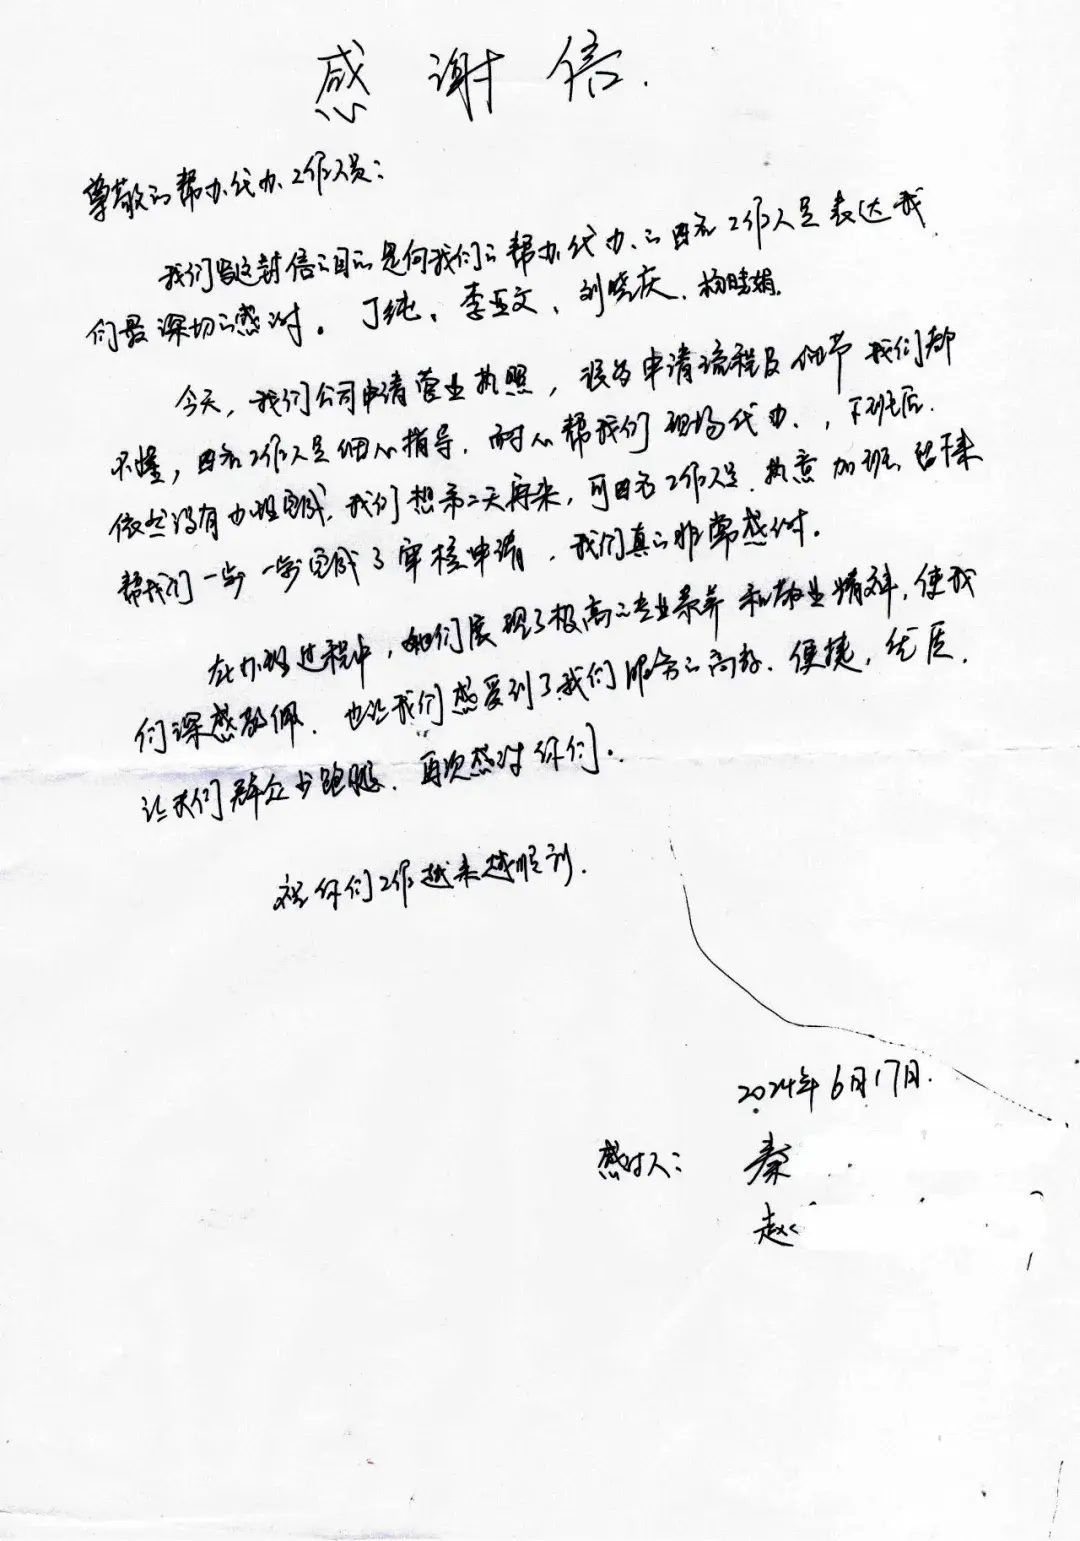 感谢信.
尊敬的帮办代办工作人员：
我们写这封信之目的是向我们的帮办代办的四名工作人员表达我
们最深切的感谢。丁纯、李亚文、刘晓庆、杨晴娟.
今天，我们公司申请营业执照，设备申请流程及细节我们都
不懂，四名工作人员细心指导，耐心帮我们现场代办，下班后
依然没有办理完成，我们想第二天再来，可四名工作人员执意加班留下来
帮我们一步一步完成了审核申请，我们真的非常感谢.
在办理过程中，她们展现了极高的专业素养和敬业精神，使我
们深感敬佩. 也让我们感受到了我们服务的高效、便捷，优质.
让我们群众少跑腿. 再次感谢你们.
祝你们工作越来越顺利.
2024年6月17日.
感谢人：秦
赵